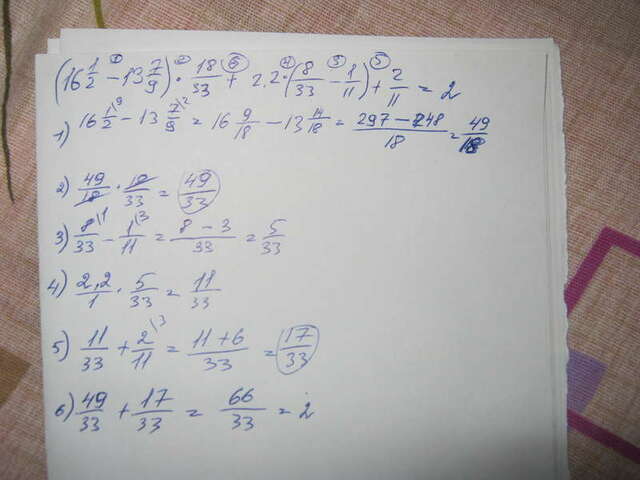 (16 1/2 - 13 7/9) · 18/33 + 2.2 · (8/33 - 1/11) + 2/11 = 2
1) 16 1/2 \9 - 13 7/9 \2 = 16 9/18 - 13 14/18 = 297 - 248/18 = 49/18
2) 49/18 · 18/33 = 49/33
3) 8/33 \1 - 1/11 \3 = 8 - 3/33 = 5/33
4) 2,2/1 · 5/33 = 11/33
5) 11/33 + 2/11 \3 = 11 + 6/33 = 17/33
6) 49/33 + 17/33 = 66/33 = 2